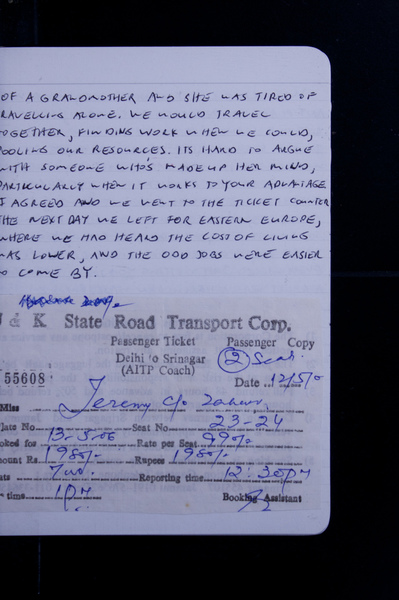 OF A GRANDMOTHER AND SHE WAS TIRED OF
RAVELLING ALONE. WE WOULD TRAVEL
OGETHER, FINDING WORK WHEN WE COULD,
OOLING OUR RESOURCES. ITS HARD TO ARGUE
WITH SOMEONE WHO'S MADE UP HER MIND,
PARTICULARLY WHEN IT WORKS TO YOUR ADVANTAGE
I AGREED AND WE WENT TO THE TICKET COUNTER
THE NEXT DAY WE LEFT FOR EASTERN EUROPE,
WHERE WE HAD HEARD THE COST OF LIVING
WAS LOWER, AND THE ODD JOBS WERE EASIER
O COME BY.
J & K State Road Transport Corp.
Passenger Ticket Passenger Copy
Delhi to Srinagar (2) Seat
(AITP Coach)
55608 Date 12/5/0
Miss Jeremy c/o
late No. Seat No 23-24
oked for 13-5-06 Rate per Seat 990/-
mount Rs 1980/- Rupees 1980/-
ats Two. Reporting time 12:30pm
time 1PM Booking Assistant